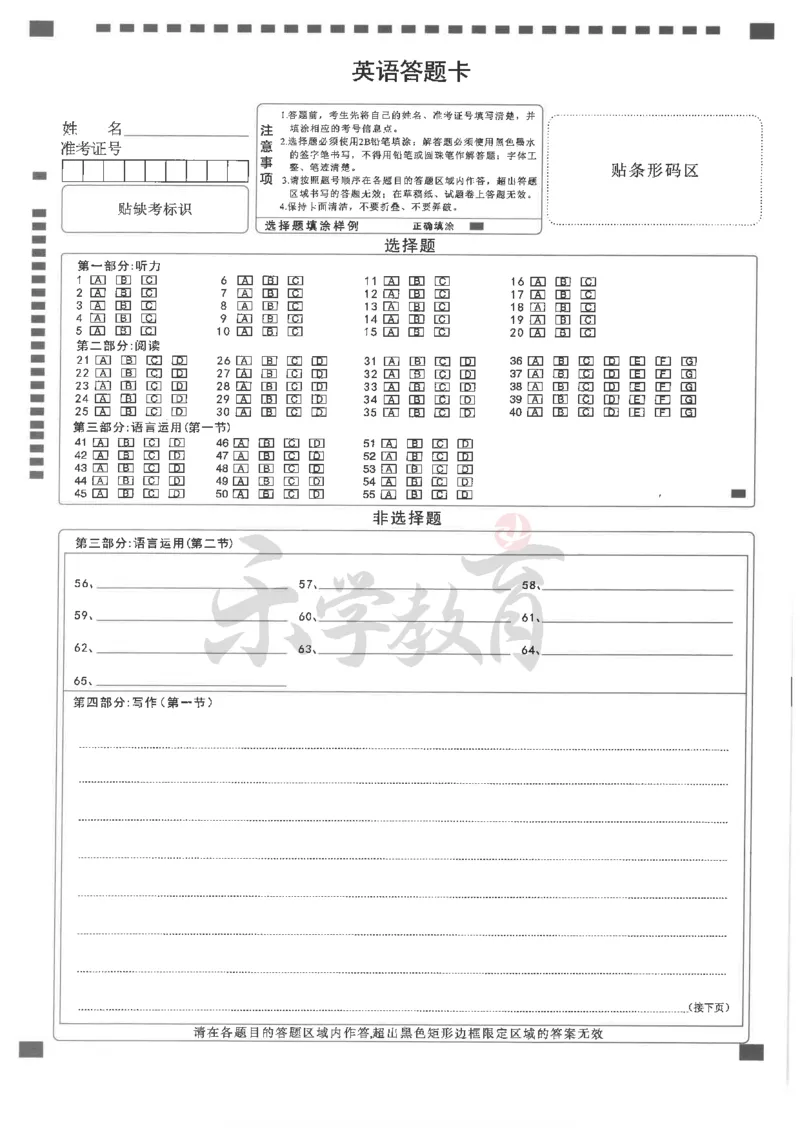 英语答题卡
姓 名
准考证号
贴缺考标识
注意事项
1.答题前，考生先将自己的姓名、准考证号填写清楚，并
填涂相应的考号信息点。
2.选择题必须使用2B铅笔填涂；解答题必须使用黑色墨水
的签字笔书写，不得用铅笔或圆珠笔作解答题；字体工
整、笔迹清楚。
3.请按照题号顺序在各题目的答题区域内作答，超出答题
区域书写的答题无效；在草稿纸、试题卷上答题无效。
4.保持卡面清洁，不要折叠、不要弄破。
选择题填涂样例 正确填涂
贴条形码区
选择题
第一部分:听力
1 A B C 6 A B C 11 A B C 16 A B C
2 A B C 7 A B C 12 A B C 17 A B C
3 A B C 8 A B C 13 A B C 18 A B C
4 A B C 9 A B C 14 A B C 19 A B C
5 A B C 10 A B C 15 A B C 20 A B C
第二部分:阅读
21 A B C D 26 A B C D 31 A B C D 36 A B C D E F G
22 A B C D 27 A B C D 32 A B C D 37 A B C D E F G
23 A B C D 28 A B C D 33 A B C D 38 A B C D E F G
24 A B C D 29 A B C D 34 A B C D 39 A B C D E F G
25 A B C D 30 A B C D 35 A B C D 40 A B C D E F G
第三部分:语言运用(第一节)
41 A B C D 46 A B C D 51 A B C D
42 A B C D 47 A B C D 52 A B C D
43 A B C D 48 A B C D 53 A B C D
44 A B C D 49 A B C D 54 A B C D
45 A B C D 50 A B C D 55 A B C D
非选择题
第三部分:语言运用(第二节)
56、 57、 58、
59、 60、 61、
62、 63、 64、
65、
乐学教育
第四部分:写作(第一节)
(接下页)
请在各题目的答题区域内作答,超出黑色矩形边框限定区域的答案无效